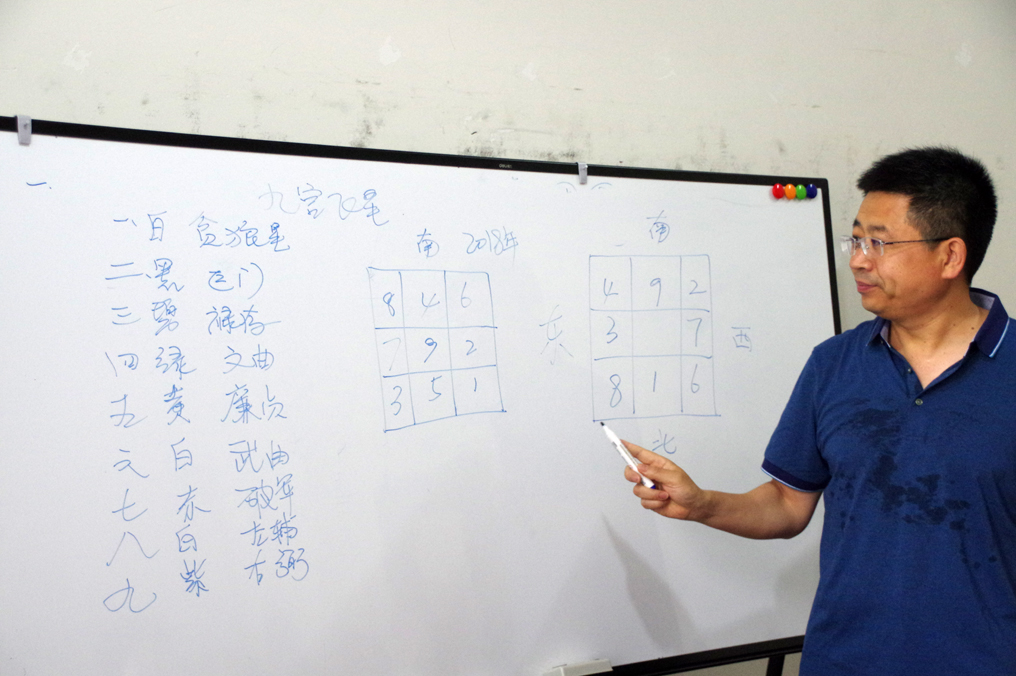 一.
九宫飞星
一、白 贪狼星
二 黑 巨门
三 碧 禄存
四 绿 文曲
五 黄 廉贞
六 白 武曲
七 赤 破军
八 白 左辅
九 紫 右弼
南 2018年
8 4 6
7 9 2
3 5 1
南
4 9 2
东 3 7 西
8 1 6
北